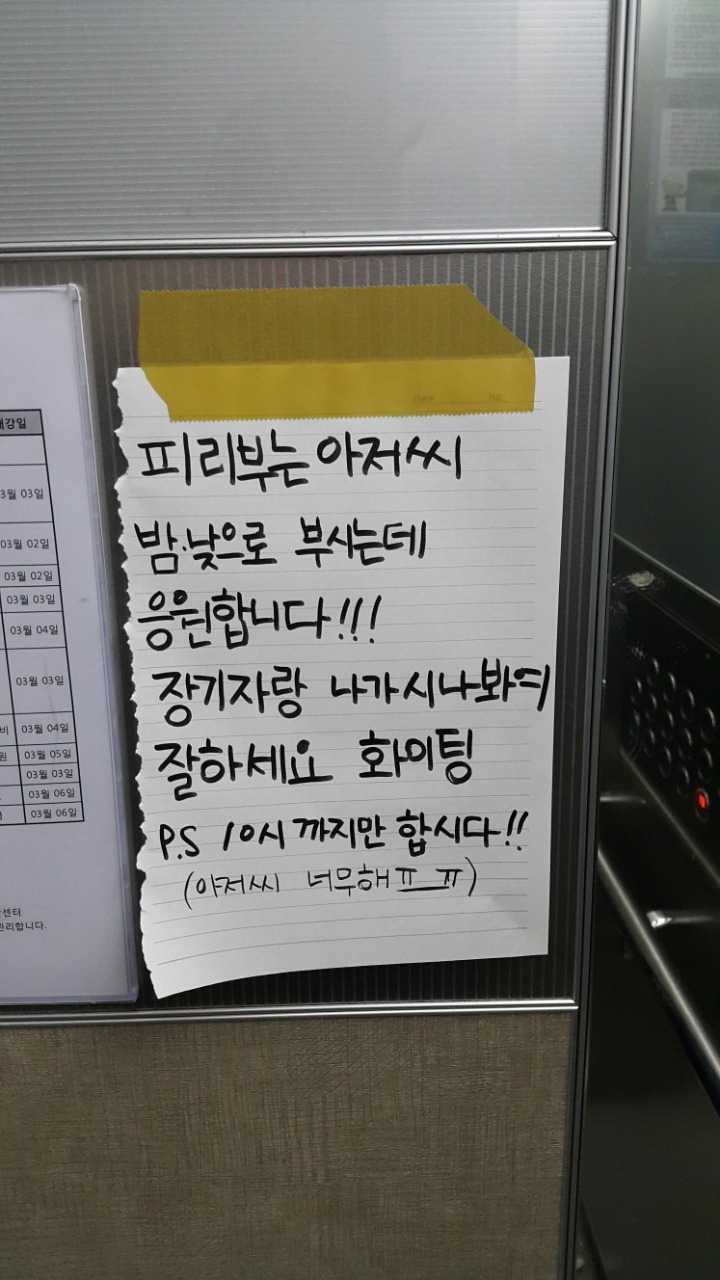 피리부는 아저씨
밤.낮으로 부시는데
응원합니다!!!
장기자랑 나가시나봐여
잘하세요 화이팅
P.S 10시 까지만 합시다!!
(아저씨 너무해ㅠ_ㅠ)
개강일
3월 03일
03월 02일
03월 02일
03월 03일
03월 04일
03월 03일
비 03월 04일
원 03월 05일
03월 03일
03월 06일
03월 06일
센터
관리합니다.